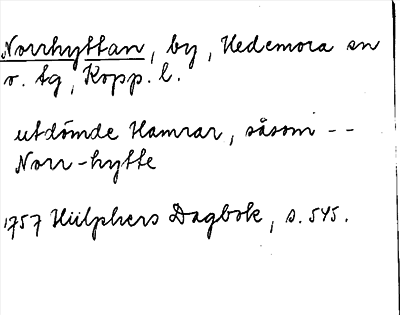 Norrhyttan, by, Hedemora sn
o. tg, Kopp. l.
utdömde Hamrar, såsom --
Norr-hytte
1757 Hülphers Dagbok, s. 545.